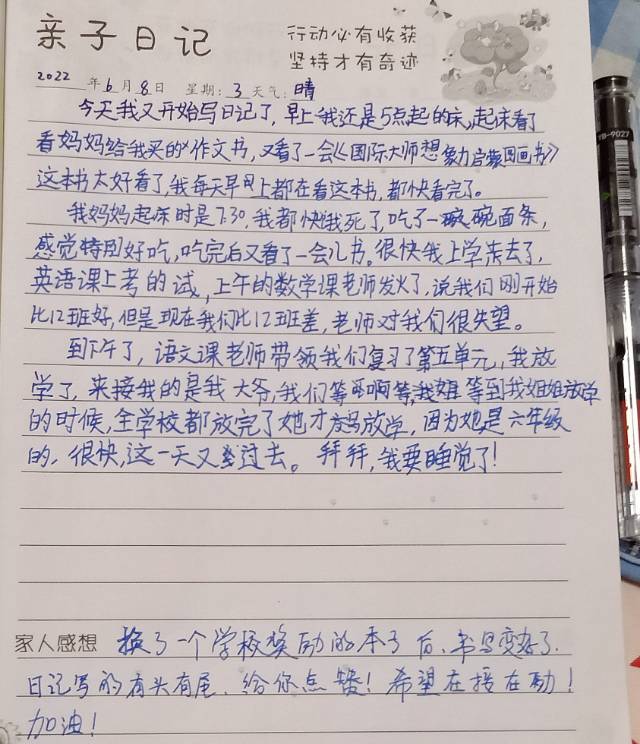 亲子日记
行动必有收获
坚持才有奇迹
2022年6月8日 星期:3 天气:晴
今天我又开始写日记了,早上我还是5点起的床,起床看了
看妈妈给我买的作文书,又看了一会《国际大师想象力启蒙图画书》
这本书太好看了,我每天早上都在看这本书,都快看完了。
我妈妈起床时是7:30,我都快饿死了,吃了一碗面条,
感觉特别好吃,吃完后又看了一会儿书。很快我上学去了,
英语课上考的试,上午的数学课老师发火了,说我们刚开始
比12班好,但是现在我们比12班差,老师对我们很失望。
到下午了,语文课老师带领我们复习了第五单元,我放
学了,来接我的是我大爷,我们等啊等,等到我姐姐放学
的时候,全学校都放完了她才放学,因为她是六年级
的,很快,这一天又过去。拜拜,我要睡觉了!
家人感想 换了一个学校奖励的本子后,书写变好了.
日记写的有头有尾、给你点赞!希望在接在励!
加油!